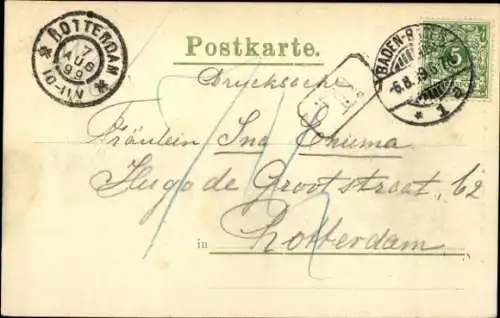 Postkarte.
Drucksache
ROTTERDAM
7
AUG
99
10-11V
BADEN-BADEN
6.8.99
* 1 a
5
Fräulein Ina Ehuma
Hugo de Grootstraat, 62
in Rotterdam